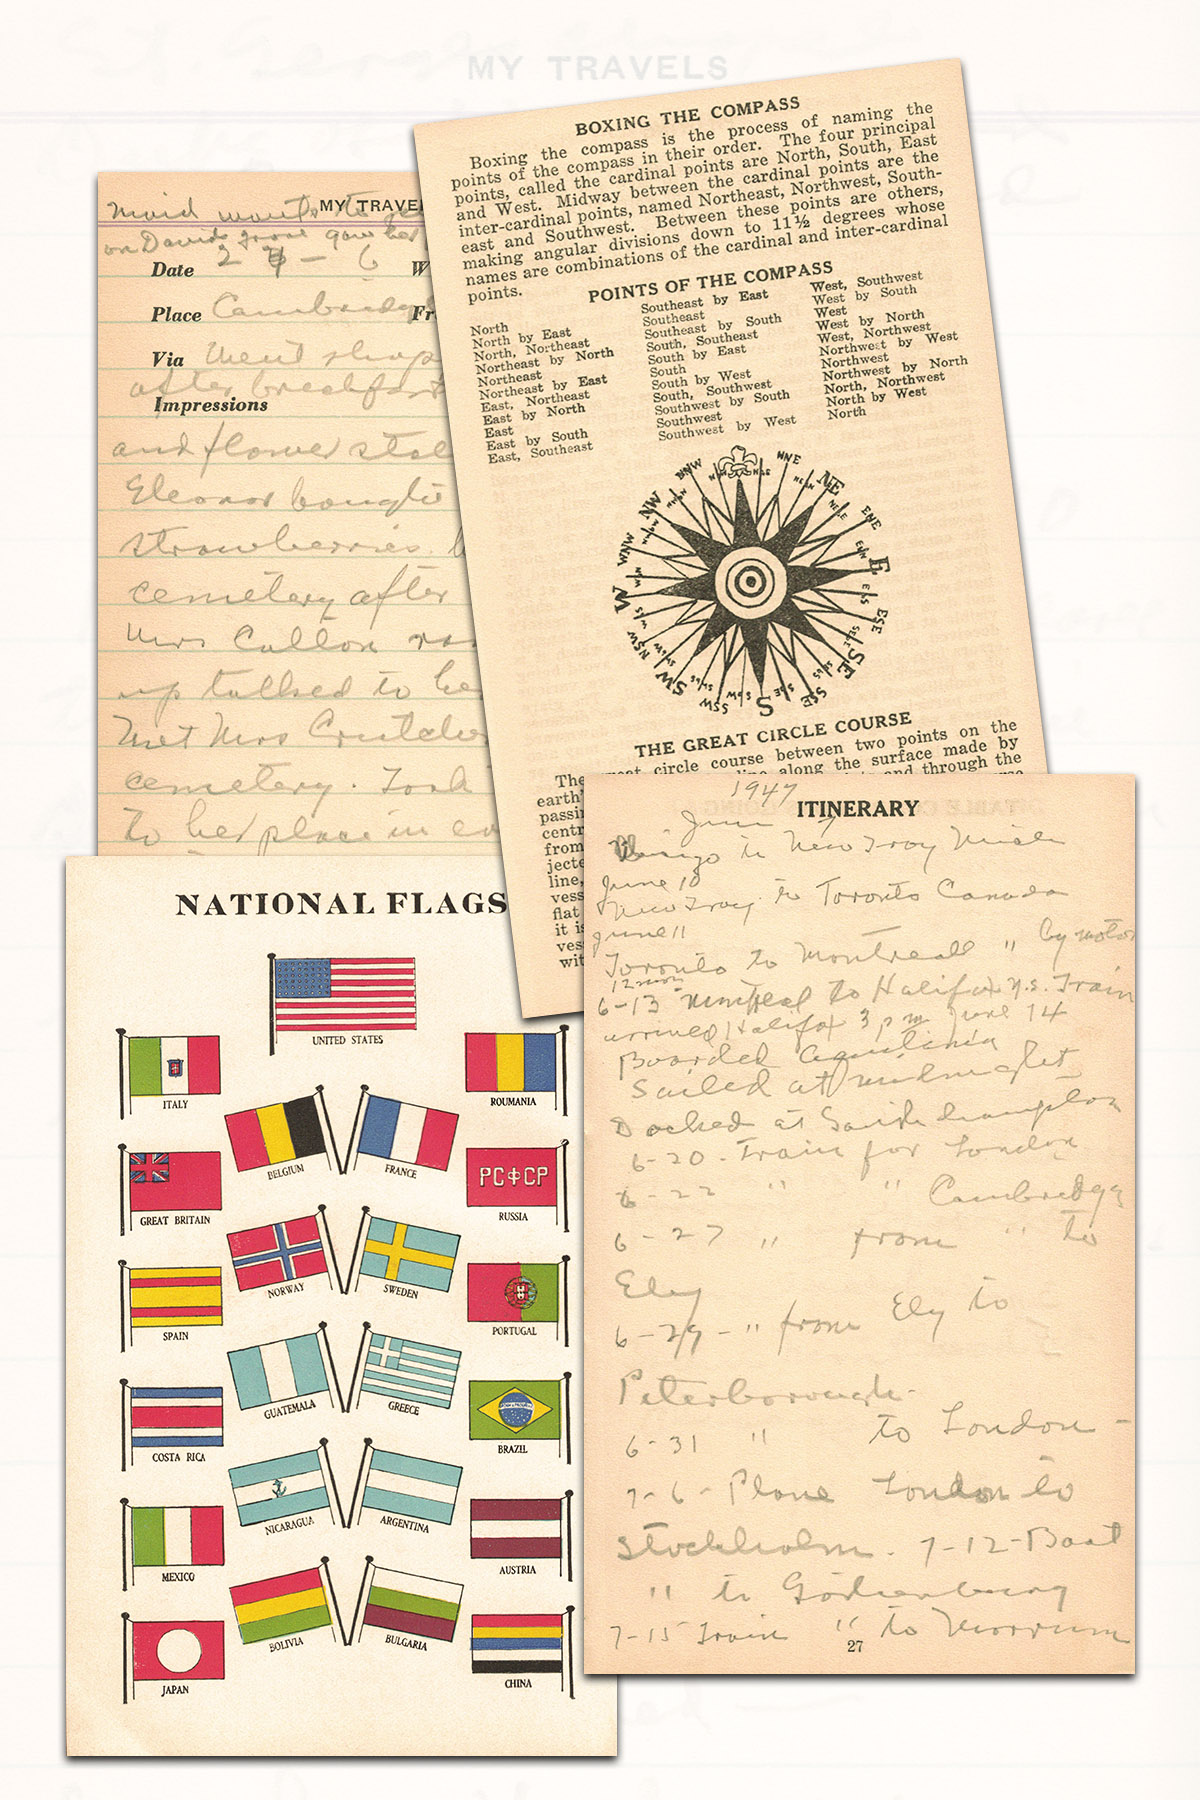 MY TRAVELS
MY TRAVE
Maid wants to
on Davids
Date 2 - 6 W
Place Cambridge Fr
Via Went shop
after breakfast
Impressions
and flower stal
Eleanor bought
strawberries.
cemetery after
Mrs Callon
up talked to he
Met Mrs Crutche
cemetery. Took
to her place in
BOXING THE COMPASS
Boxing the compass is the process of naming the
points of the compass in their order. The four principal
points, called the cardinal points are North, South, East
and West. Midway between the cardinal points are the
inter-cardinal points, named Northeast, Northwest, South-
east and Southwest. Between these points are others,
making angular divisions down to 11½ degrees whose
names are combinations of the cardinal and inter-cardinal
points.
POINTS OF THE COMPASS
North
North by East
North, Northeast
Northeast by North
Northeast
Northeast by East
East, Northeast
East by North
East
East by South
East, Southeast
Southeast by East
Southeast
Southeast by South
South, Southeast
South by East
South
South by West
South, Southwest
Southwest by South
Southwest
Southwest by West
West, Southwest
West by South
West
West by North
West, Northwest
Northwest by West
Northwest
Northwest by North
North, Northwest
North by West
North
NNW
NNE
NW
NE
WNW
ENE
W
E
WSW
ESE
SW
SE
SSW
SSE
S
THE GREAT CIRCLE COURSE
The great circle course between two points on the
earth' line along the surface made by
passin and through the
centr
from
jecte
line,
vess
flat
it is
ves
wit
NATIONAL FLAGS
UNITED STATES
ITALY
ROUMANIA
BELGIUM
FRANCE
GREAT BRITAIN
РСФСР
RUSSIA
NORWAY
SWEDEN
SPAIN
PORTUGAL
GUATEMALA
GREECE
COSTA RICA
BRAZIL
NICARAGUA
ARGENTINA
MEXICO
AUSTRIA
BOLIVIA
BULGARIA
JAPAN
CHINA
1947
ITINERARY
June 7
to New Troy Mich
June 10
New Troy to Toronto Canada
June 11
Toronto to Montreal " by motor
12 noon
6-13 Montreal to Halifax N.S. Train
arrived Halifax 3 pm June 14
Boarded Aquitania
Sailed at midnight
Docked at Southampton
6-20 - Train for London
6-22 " " Cambridge
6-27 " from " to
Ely
6-29 - " from Ely to
Peterborough-
6-31 " to London -
7-6 - Plane London to
Stockholm. 7-12-Boat
" to Gothenburg
7-15 Train " to Morrum
27